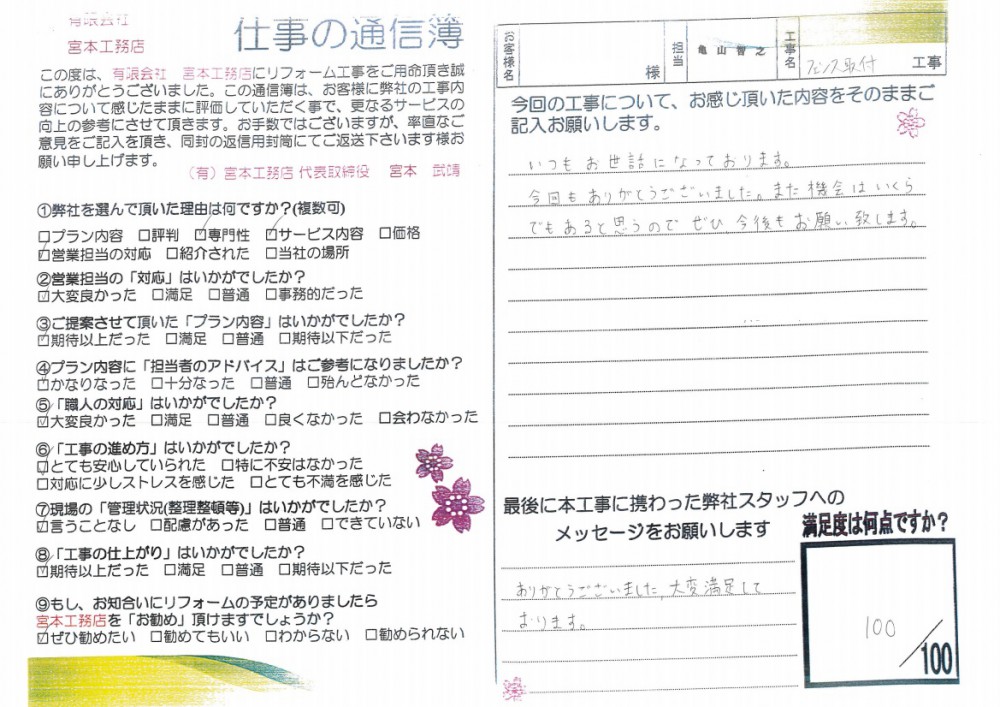 有限会社
宮本工務店
仕事の通信簿
この度は、有限会社 宮本工務店にリフォーム工事をご用命頂き誠
にありがとうございました。この通信簿は、お客様に弊社の工事内
容について感じたままに評価していただく事で、更なるサービスの
向上の参考にさせて頂きます。お手数ではございますが、率直なご
意見をご記入を頂き、同封の返信用封筒にてご返送下さいます様お
願い申し上げます。
（有）宮本工務店 代表取締役 宮本 武靖
①弊社を選んで頂いた理由は何ですか？(複数可)
□プラン内容 □評判 ☑専門性 ☑サービス内容 □価格
☑営業担当の対応 □紹介された □当社の場所
②営業担当の「対応」はいかがでしたか？
☑大変良かった □満足 □普通 □事務的だった
③ご提案させて頂いた「プラン内容」はいかがでしたか？
☑期待以上だった □満足 □普通 □期待以下だった
④プラン内容に「担当者のアドバイス」はご参考になりましたか？
☑かなりなった □十分なった □普通 □殆んどなかった
⑤「職人の対応」はいかがでしたか？
☑大変良かった □満足 □普通 □良くなかった □会わなかった
⑥「工事の進め方」はいかがでしたか？
☑とても安心していられた □特に不安はなかった
□対応に少しストレスを感じた □とても不満を感じた
⑦現場の「管理状況(整理整頓等)」はいかがでしたか？
☑言うことなし □配慮があった □普通 □できていない
⑧「工事の仕上がり」はいかがでしたか？
☑期待以上だった □満足 □普通 □期待以下だった
⑨もし、お知合いにリフォームの予定がありましたら
宮本工務店を「お勧め」頂けますでしょうか？
☑ぜひ勧めたい □勧めてもいい □わからない □勧められない
お客様名 様 担当 亀山智之 工事名 フェンス取付 工事
今回の工事について、お感じ頂いた内容をそのままご
記入お願いします。
いつもお世話になっております。
今回もありがとうございました。また機会はいくら
でもあると思うのでぜひ今後もお願い致します。
最後に本工事に携わった弊社スタッフへの
メッセージをお願いします
ありがとうございました、大変満足して
おります。
満足度は何点ですか？
100/100